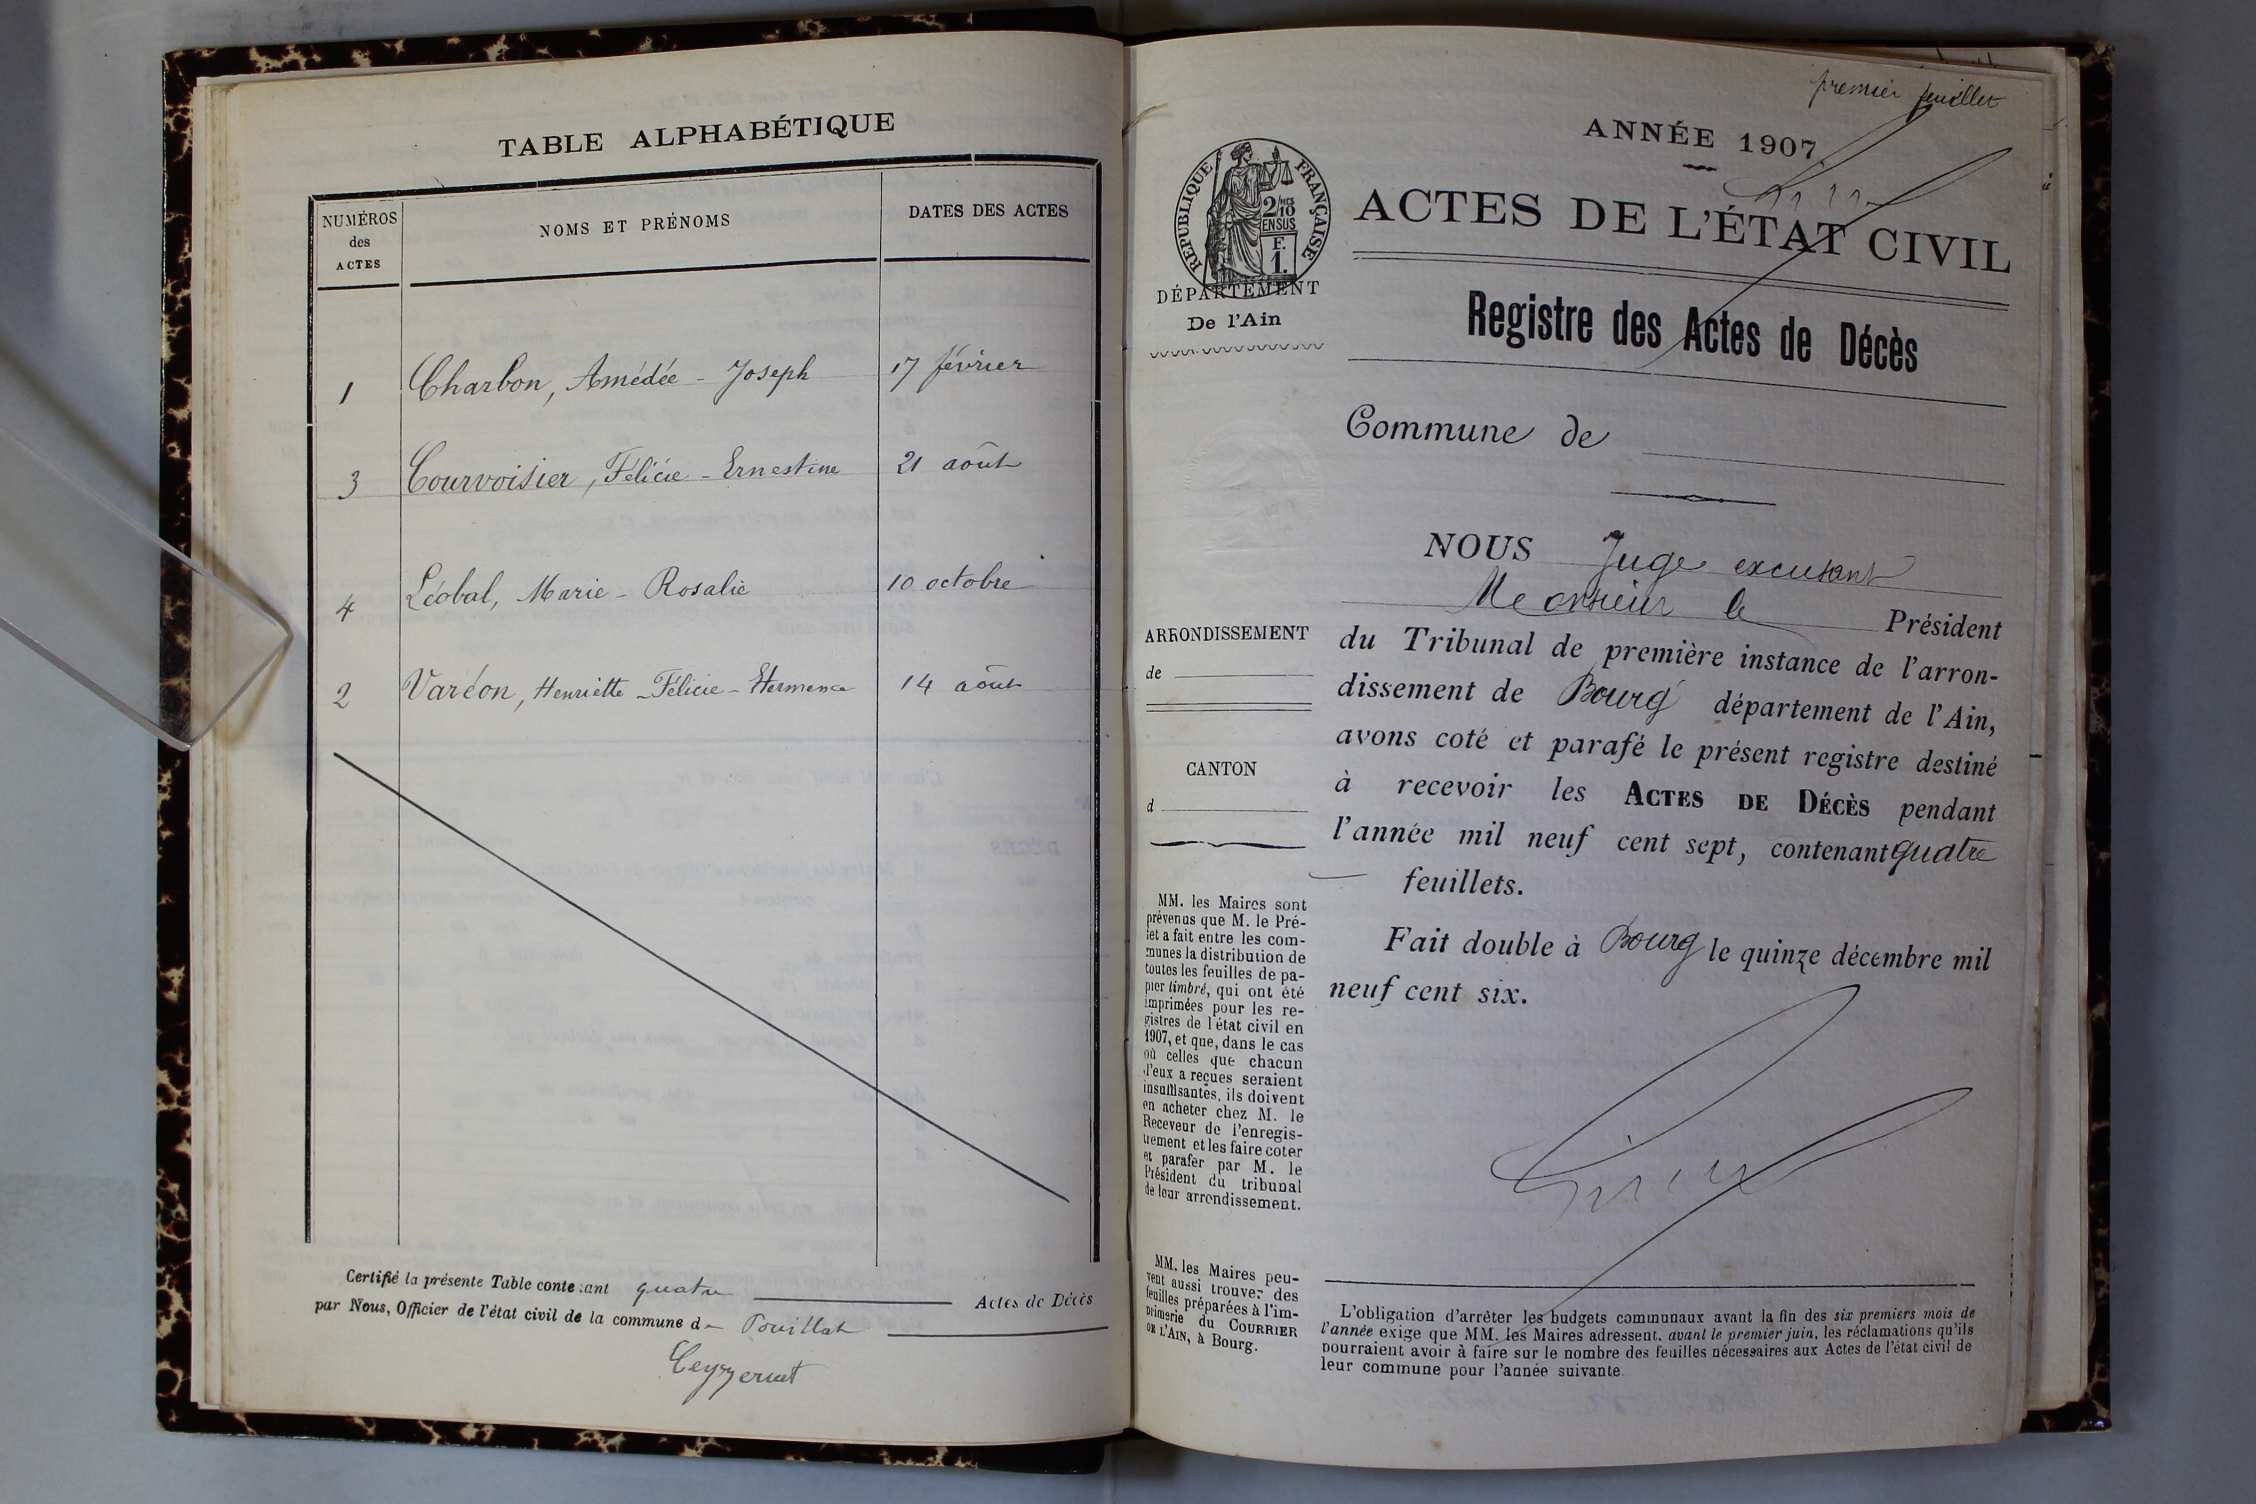 TABLE ALPHABÉTIQUE
NUMÉROS
des
ACTES
NOMS ET PRÉNOMS
DATES DES ACTES
1 Charbon, Amédée - Joseph 17 février
3 Courvoisier, Félicie - Ernestine 21 août
4 Léobal, Marie - Rosalie 10 octobre
2 Varéon, Henriette - Félicie - Hermence 14 août
Certifié la présente Table contenant quatre Actes de Décès
par Nous, Officier de l'état civil de la commune de Pouillat
premier feuillet
ANNÉE 1907.
RÉPUBLIQUE FRANÇAISE
2/10 MES
EN SUS
F.
1.
ACTES DE L'ÉTAT CIVIL
DÉPARTEMENT
De l'Ain
Registre des Actes de Décès
Commune de
NOUS Juge excusant
Monsieur le Président
du Tribunal de première instance de l'arron-
dissement de Bourg département de l'Ain,
avons coté et parafé le présent registre destiné
à recevoir les ACTES DE DÉCÈS pendant
l'année mil neuf cent sept, contenant quatre
feuillets.
Fait double à Bourg le quinze décembre mil
neuf cent six.
ARRONDISSEMENT
de
CANTON
d
MM. les Maires sont
prévenus que M. le Pré-
fet a fait entre les com-
munes la distribution de
toutes les feuilles de pa-
pier timbré, qui ont été
imprimées pour les re-
gistres de l'état civil en
1907, et que, dans le cas
où celles que chacun
d'eux a reçues seraient
insuffisantes, ils doivent
en acheter chez M. le
Receveur de l'enregis-
trement et les faire coter
et parafer par M. le
Président du tribunal
de leur arrondissement.
MM. les Maires peu-
vent aussi trouver des
feuilles préparées à l'im-
primerie du COURRIER
DE L'AIN, à Bourg.
L'obligation d'arrêter les budgets communaux avant la fin des six premiers mois de
l'année exige que MM. les Maires adressent, avant le premier juin, les réclamations qu'ils
pourraient avoir à faire sur le nombre des feuilles nécessaires aux Actes de l'état civil de
leur commune pour l'année suivante.